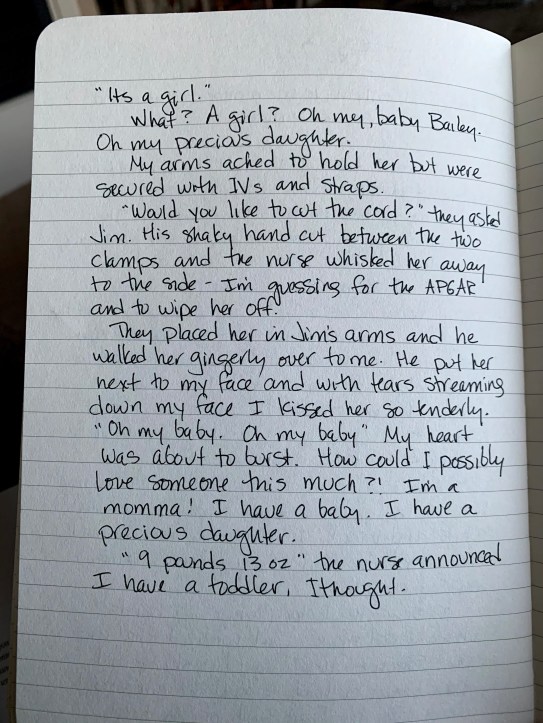 "Its a girl."
What? A girl? Oh my, baby Bailey.
Oh my precious daughter.
My arms ached to hold her but were
secured with IVs and straps.
"Would you like to cut the cord?" they asked
Jim. His shaky hand cut between the two
clamps and the nurse whisked her away
to the side - I'm guessing for the APGAR
and to wipe her off.
They placed her in Jim's arms and he
walked her gingerly over to me. He put her
next to my face and with tears streaming
down my face I kissed her so tenderly.
"Oh my baby. Oh my baby" My heart
was about to burst. How could I possibly
love someone this much?! I'm a
momma! I have a baby. I have a
precious daughter.
"9 pounds 13 oz" the nurse announced
I have a toddler, I thought.